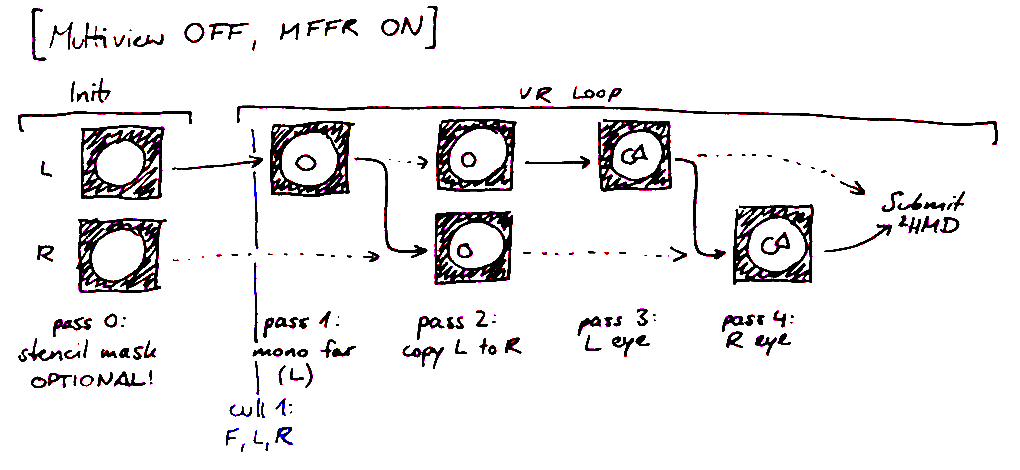 [Multiview OFF, MFFR ON]
Init
VR LOOP
L
R
Submit
2HMD
pass 0:
stencil mask
OPTIONAL!
pass 1:
mono far
(L)
pass 2:
copy L to R
pass 3:
L eye
pass 4:
R eye
cull 1:
F, L, R